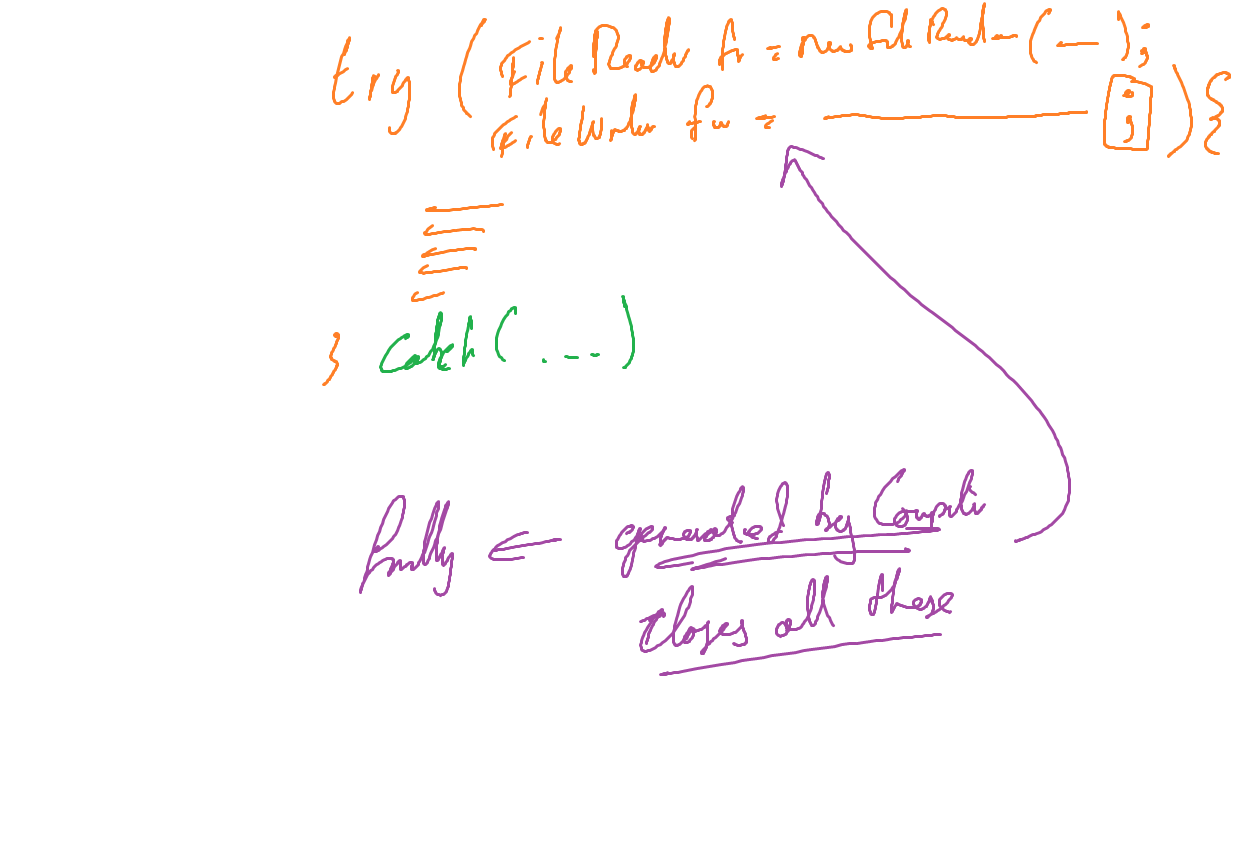 try ( FileReader fr = new FileReader( — );
FileWriter fw = ——— ; ) {
} catch( . --- )
finally ← generated by Compiler
closes all these